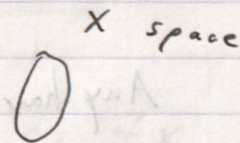 X space